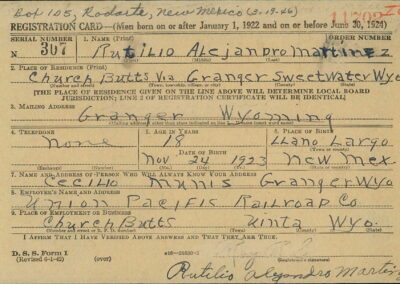 Box 105, Rodarte, New Mexico (3-19-46)
REGISTRATION CARD—(Men born on or after January 1, 1922 and on or before June 30, 1924)
SERIAL NUMBER 1. NAME (Print) ORDER NUMBER
N 307 Rutilio Alejandro Martinez
2. PLACE OF RESIDENCE (Print)
Church Butts Via Granger Sweetwater Wyo
(Number and street) (Town, township, village, or city) (County) (State)
[THE PLACE OF RESIDENCE GIVEN ON THE LINE ABOVE WILL DETERMINE LOCAL BOARD
JURISDICTION; LINE 2 OF REGISTRATION CERTIFICATE WILL BE IDENTICAL]
3. MAILING ADDRESS
Granger Wyoming
4. TELEPHONE 5. AGE IN YEARS 6. PLACE OF BIRTH
None 18 Llano Largo
DATE OF BIRTH (Town or county)
Nov 24 1923 New Mex
(Exchange) (Number) (Mo.) (Day) (Yr.) (State or country)
7. NAME AND ADDRESS OF PERSON WHO WILL ALWAYS KNOW YOUR ADDRESS
Cecilio Munis Granger Wyo
8. EMPLOYER'S NAME AND ADDRESS
Union Pacific Railroad Co.
9. PLACE OF EMPLOYMENT OR BUSINESS
Church Butts Uinta Wyo.
(Number and street or R. F. D. number) (Town) (County) (State)
I AFFIRM THAT I HAVE VERIFIED ABOVE ANSWERS AND THAT THEY ARE TRUE.
D. S. S. Form 1
(Revised 6-1-42) (over)
Rutilio Alejandro Martinez